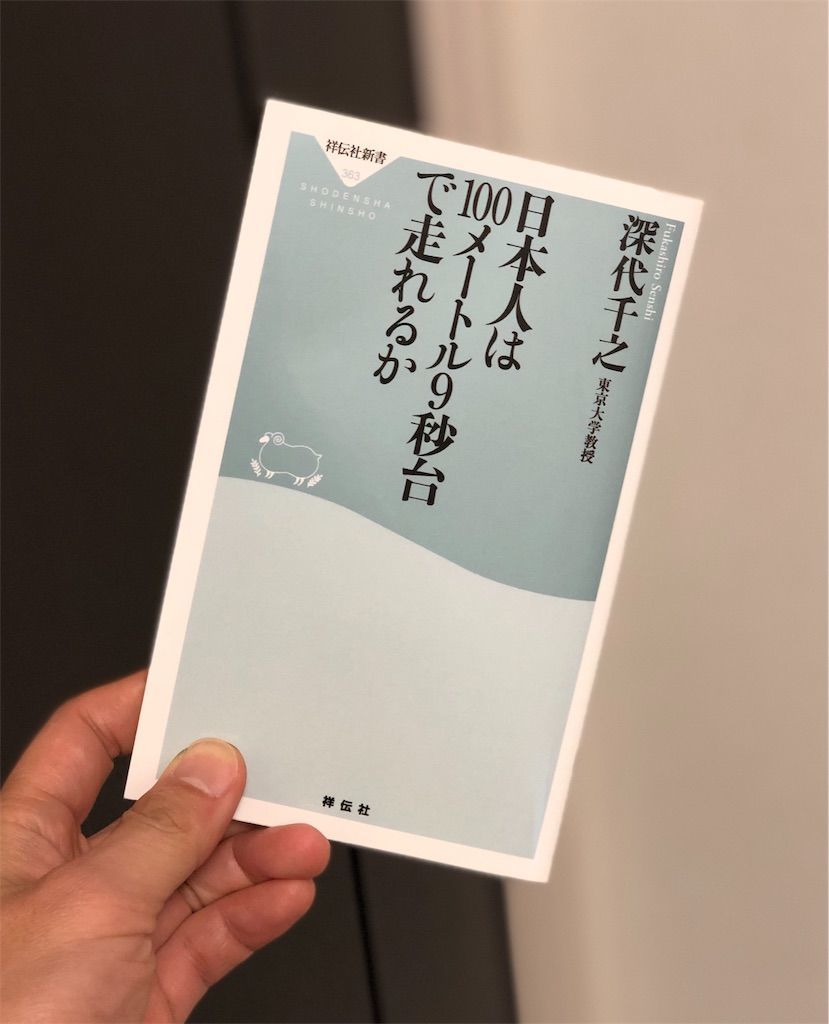 祥伝社新書
363
SHODENSHA
SHINSHO
日本人は
100メートル9秒台
で走れるか
深代千之
Fukashiro Senshi
東京大学教授
祥伝社